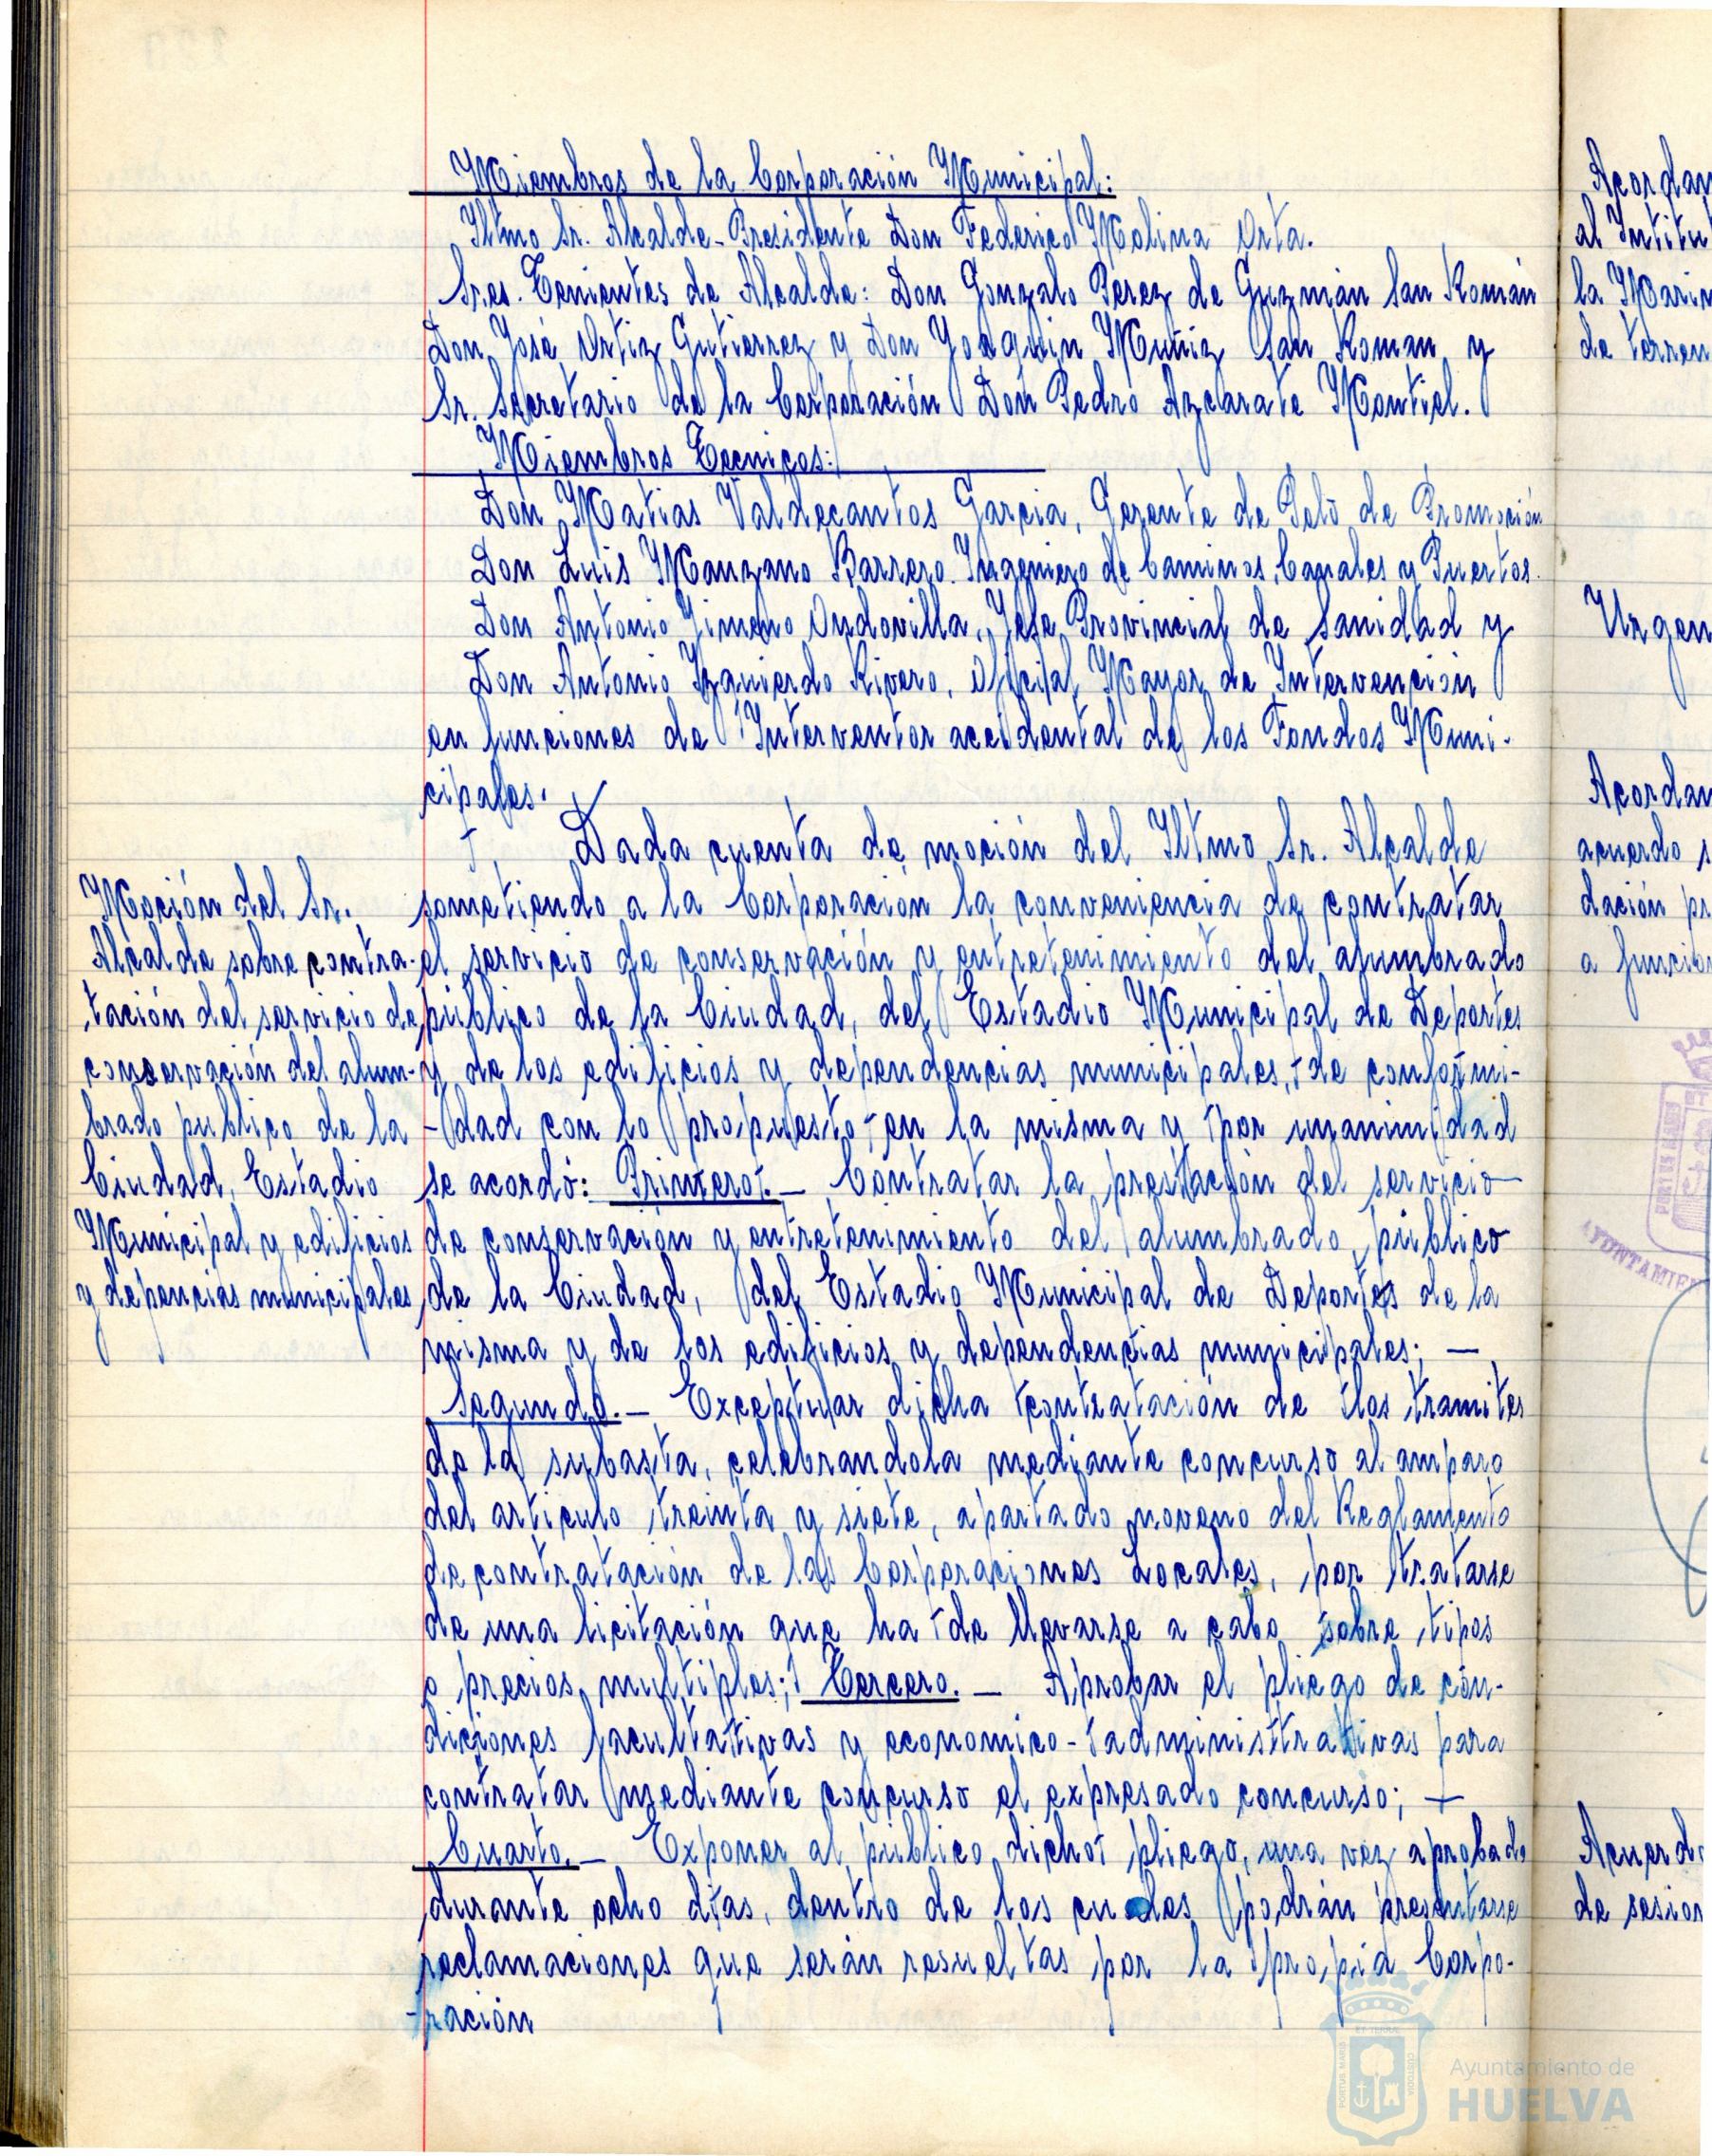 Miembros de la Corporación Municipal:
Iltmo Sr. Alcalde-Presidente Don Federico Molina Orta.
Sres. Tenientes de Alcalde: Don Gonzalo Perez de Guzmán San Román
Don José Ortiz Gutierrez y Don Joaquin Muñiz San Roman y
Sr. Secretario de la Corporación Don Pedro Azcarate Montiel.
Miembros Tecnicos:
Don Matias Valdecantos Garcia, Gerente de Polo de Promoción
Don Luis Manzano Barrero. Ingeniero de Caminos, Canales y Puertos.
Don Antonio Jimeno Ondovilla, Jefe Provincial de Sanidad y
Don Antonio Izquierdo Rivero, Oficial Mayor de Intervención
en funciones de Interventor accidental de los Fondos Muni-
cipales.
Dada cuenta de moción del Iltmo Sr. Alcalde
sometiendo a la Corporación la conveniencia de contratar
el servicio de conservación y entretenimiento del alumbrado
público de la Ciudad, del Estadio Municipal de Deportes
y de los edificios y dependencias municipales, de conformi-
-dad con lo propuesto en la misma y por unanimidad
se acordó: Primero.- Contratar la prestación del servicio
de conservación y entretenimiento del alumbrado público
de la Ciudad, del Estadio Municipal de Deportes de la
misma y de los edificios y dependencias municipales; —
Segundo.- Exceptuar dicha contratación de los tramites
de la subasta, celebrandola mediante concurso al amparo
del articulo treinta y siete, apartado noveno del Reglamento
de contratación de las Corporaciones Locales, por tratarse
de una licitación que ha de llevarse a cabo sobre tipos
o precios multiples; Tercero.- Aprobar el pliego de con-
diciones facultativas y economico-administrativas para
contratar mediante concurso el expresado concurso; —
Cuarto.- Exponer al público dicho pliego, una vez aprobado
durante ocho días, dentro de los cuales podrán presentarse
reclamaciones que serán resueltas por la propia Corpo-
-ración
Moción del Sr.
Alcalde sobre contra-
tación del servicio de
conservación del alum-
brado publico de la
Ciudad, Estadio
Municipal y edificios
y depencias municipales
Acordan
al Intitu
la Marin
de terren
Urgen
Acordan
acuerdo s
dación pr
a funcion
AYUNTAMIE
Acuerdo
de sesion
Ayuntamiento de
HUELVA